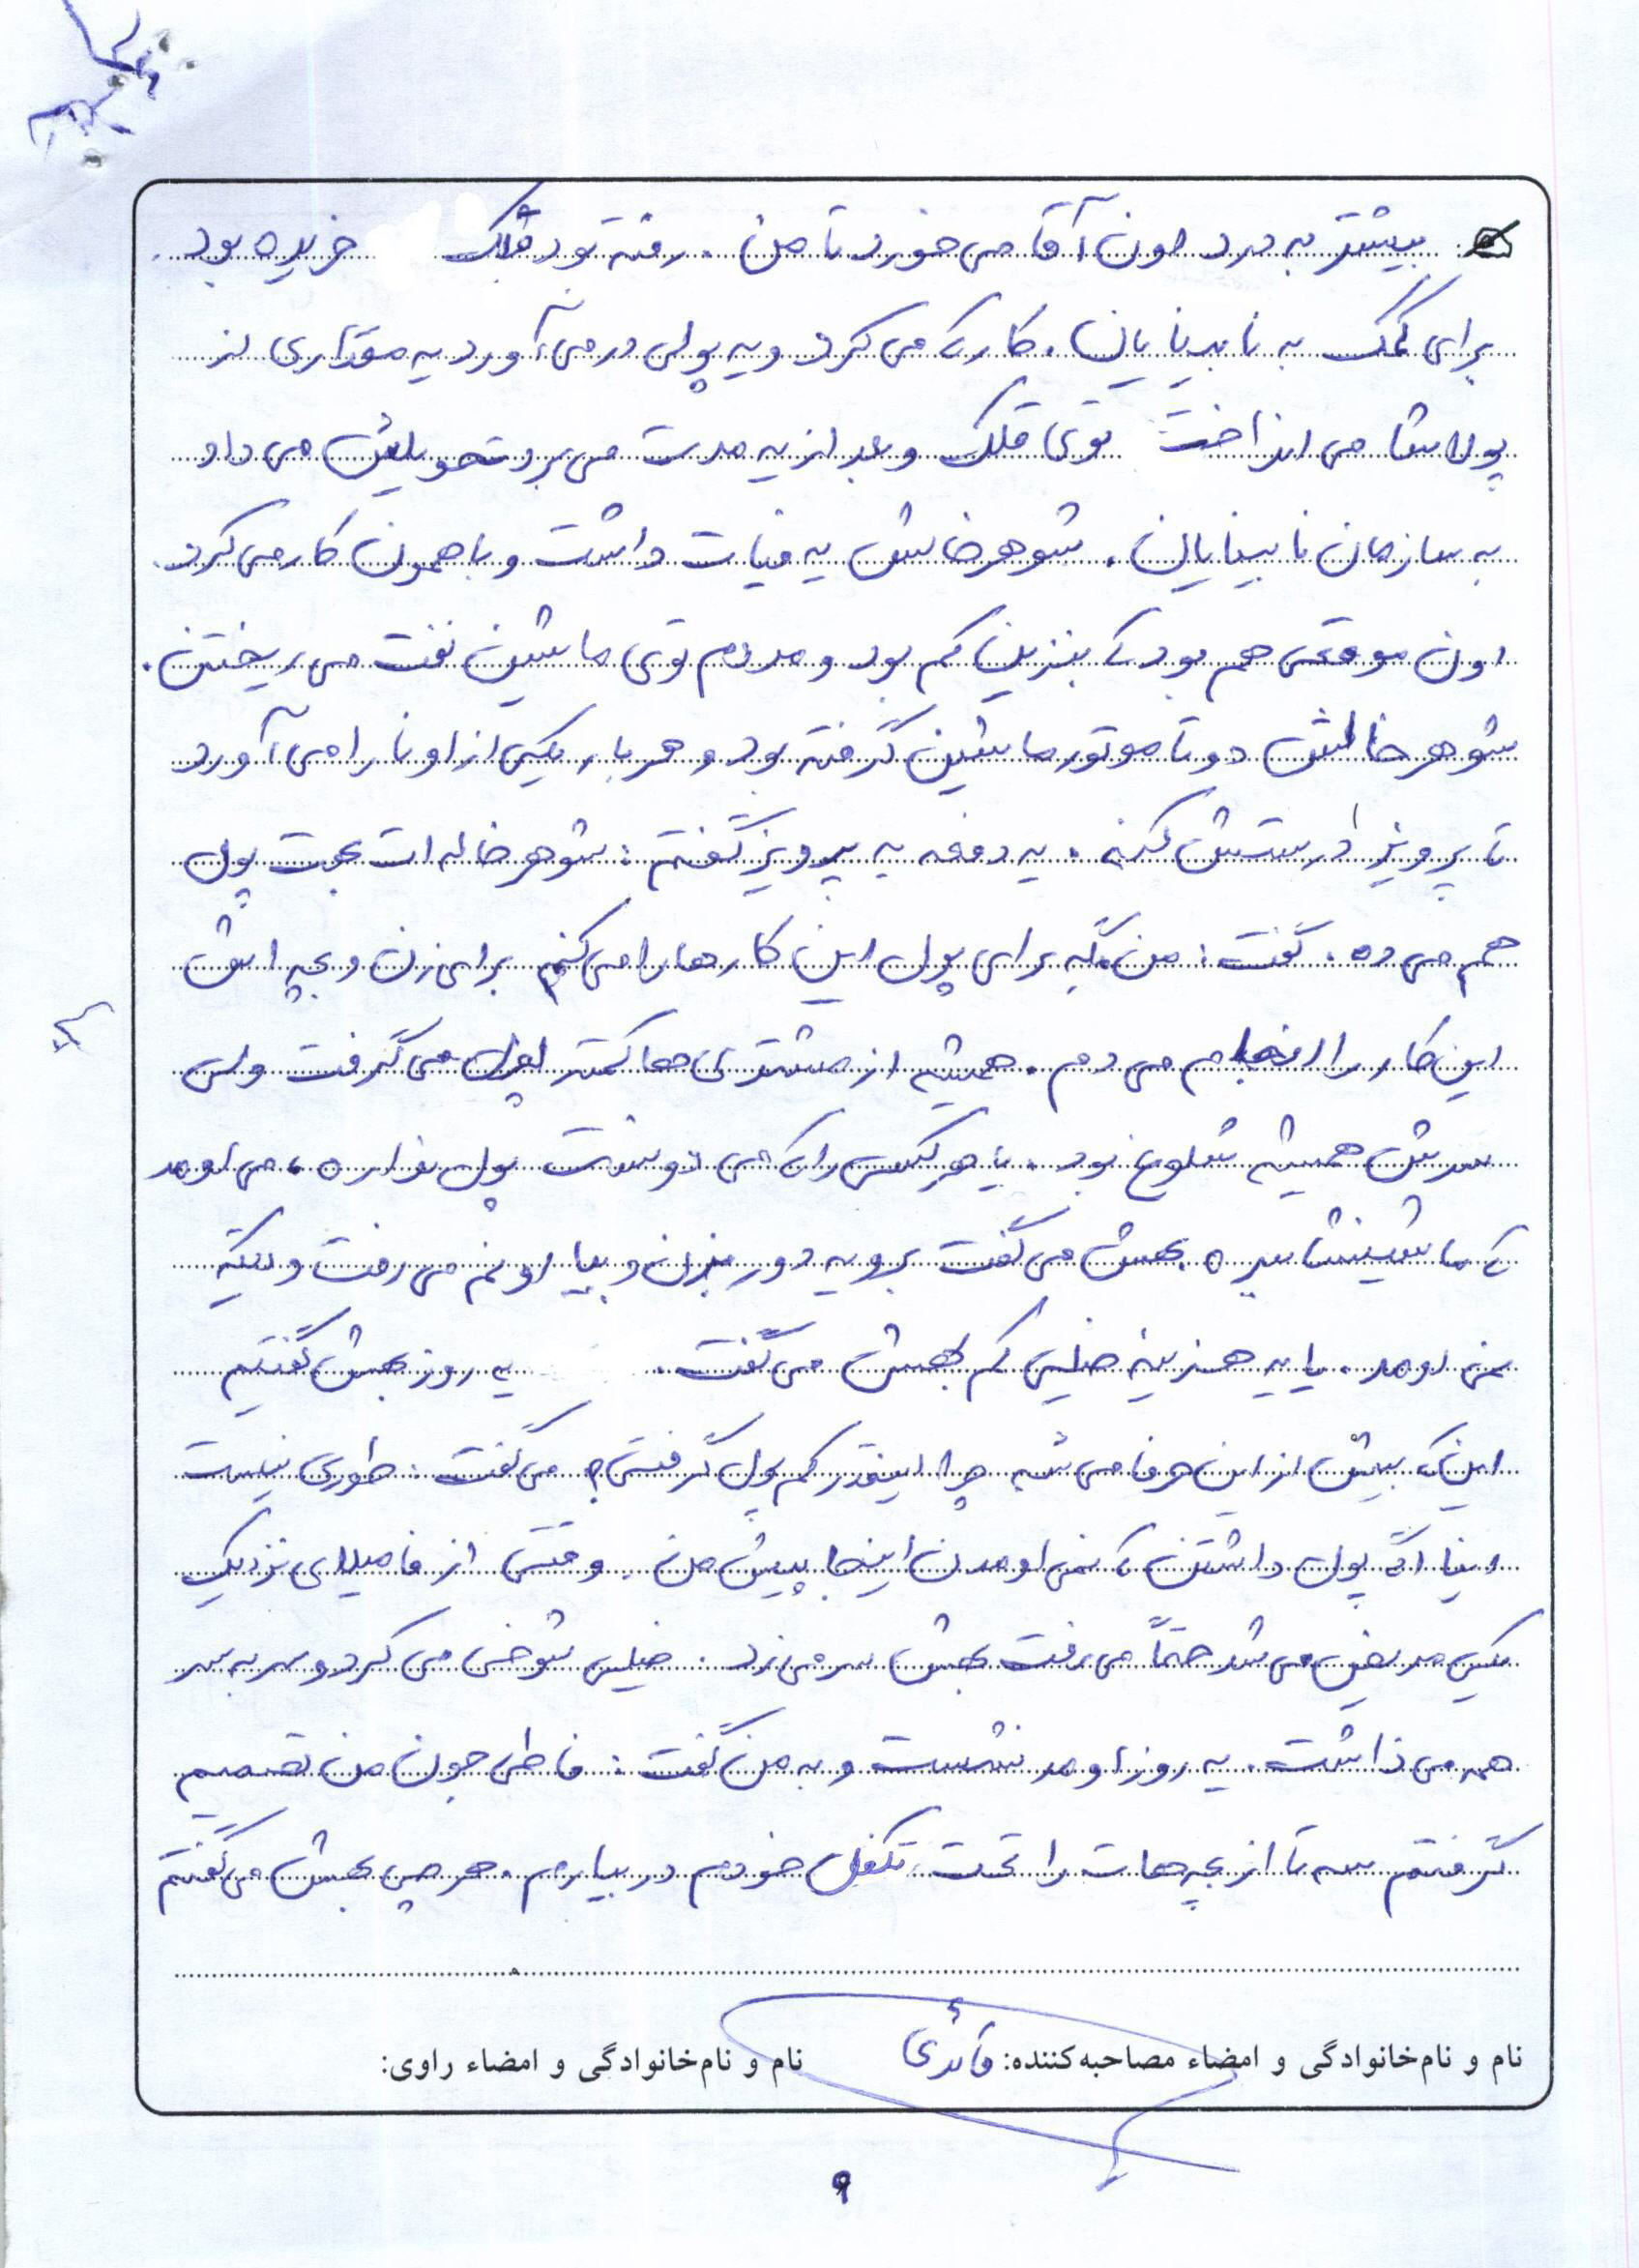 بیشتر به درد اون آقا می خورد تا من. رفته بود قلک خریده بود.
برای کمک به نابینایان. کار که می کرد و یه پولی در می آورد یه مقداری از
پولاشا می انداخت توی قلک و بعد از یه مدت می برد تحویلش می داد
به سازمان نابینایان. شوهر خالش یه فیات داشت و با همون کار می کرد.
اون موقعی هم بود که بنزین کم بود و مردم توی ماشین نفت می ریختن.
شوهر خالش دو تا موتور ماشین گرفته بود و هر بار یکی از اونا را می آورد
تا پرویز درستش کنه. یه دفعه به پرویز گفتم: شوهر خاله ات بهت پول
هم می ده. گفت: من مگه برای پول این کارها را می کنم برای زن و بچه اش
این کار را انجام می دم. همیشه از مشتری ها کمتر پول می گرفت ولی
سرش همیشه شلوغ بود. یا هر کسی را که می دونست پول نداره، می اومد
که ماشینشا ببره بهش می گفت برو یه دور بزن و بیا اونم می رفت و دیگه
نمی اومد. یا یه هزینه خیلی کم بهش می گفت. یه روز بهش گفتیم
اینکه بیش از این حرفا می شه چرا اینقدر کم پول گرفتی؟ می گفت: طوری نیست
اینا اگه پول داشتن که نمی اومدن اینجا پیش من. وقتی از فامیلای نزدیک
یکی مریض می شد حتماً می رفت بهش سر می زد. خیلی شوخی می کرد و سر به سر
همه می ذاشت. یه روز اومد نشست و به من گفت: فاطی جون من تصمیم
گرفتم سه تا از بچه هات را تحت تکفل خودم در بیارم. هر چی بهش می گفتم
نام و نام‌خانوادگی و امضاء مصاحبه‌کننده: قائدی نام و نام‌خانوادگی و امضاء راوی:
۹